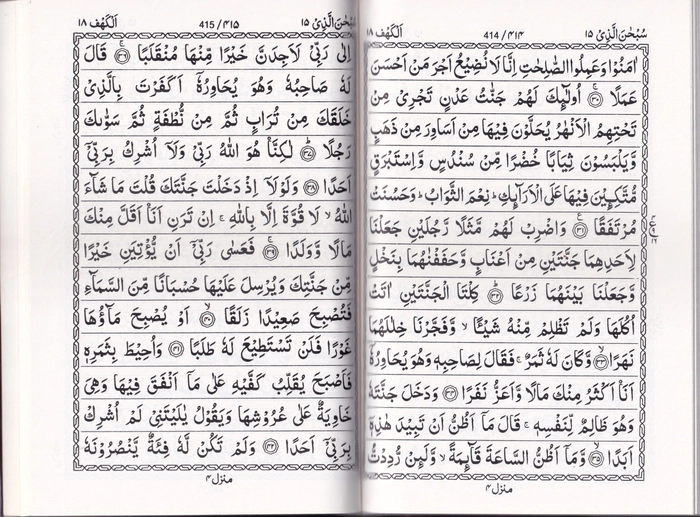 سُبْحٰنَ الَّذِیْۤ ۱۵
414 / ۴۱۴
اَلْكَهْف ۱۸
اٰمَنُوْا وَعَمِلُوا الصّٰلِحٰتِ اِنَّا لَا نُضِیْعُ اَجْرَ مَنْ اَحْسَنَ
عَمَلًا ۚ﴿۳۰﴾ اُولٰٓئِكَ لَهُمْ جَنّٰتُ عَدْنٍ تَجْرِیْ مِنْ
تَحْتِهِمُ الْاَنْهٰرُ یُحَلَّوْنَ فِیْهَا مِنْ اَسَاوِرَ مِنْ ذَهَبٍ
وَّیَلْبَسُوْنَ ثِیَابًا خُضْرًا مِّنْ سُنْدُسٍ وَّاِسْتَبْرَقٍ
مُّتَّكِـِٕیْنَ فِیْهَا عَلَی الْاَرَآئِكِ ؕ نِعْمَ الثَّوَابُ ؕ وَحَسُنَتْ
مُرْتَفَقًا ﴿۳۱﴾ وَاضْرِبْ لَهُمْ مَّثَلًا رَّجُلَیْنِ جَعَلْنَا
لِاَحَدِهِمَا جَنَّتَیْنِ مِنْ اَعْنَابٍ وَّحَفَفْنٰهُمَا بِنَخْلٍ
وَّجَعَلْنَا بَیْنَهُمَا زَرْعًا ﴿۳۲﴾ كِلْتَا الْجَنَّتَیْنِ اٰتَتْ
اُكُلَهَا وَلَمْ تَظْلِمْ مِّنْهُ شَیْـًٔا ۙ وَّفَجَّرْنَا خِلٰلَهُمَا
نَهَرًا ﴿۳۳﴾ وَّكَانَ لَهٗ ثَمَرٌ ۚ فَقَالَ لِصَاحِبِهٖ وَهُوَ یُحَاوِرُهٗۤ
اَنَا اَكْثَرُ مِنْكَ مَالًا وَّاَعَزُّ نَفَرًا ﴿۳۴﴾ وَدَخَلَ جَنَّتَهٗ
وَهُوَ ظَالِمٌ لِّنَفْسِهٖ ۚ قَالَ مَاۤ اَظُنُّ اَنْ تَبِیْدَ هٰذِهٖۤ
اَبَدًا ﴿۳۵﴾ وَّمَاۤ اَظُنُّ السَّاعَةَ قَآئِمَةً ۙ وَّلَئِنْ رُّدِدْتُّ
منزل ۴
سُبْحٰنَ الَّذِیْۤ ۱۵
415 / ۴۱۵
اَلْكَهْف ۱۸
اِلٰی رَبِّیْ لَاَجِدَنَّ خَیْرًا مِّنْهَا مُنْقَلَبًا ﴿۳۶﴾ قَالَ
لَهٗ صَاحِبُهٗ وَهُوَ یُحَاوِرُهٗۤ اَكَفَرْتَ بِالَّذِیْ
خَلَقَكَ مِنْ تُرَابٍ ثُمَّ مِنْ نُّطْفَةٍ ثُمَّ سَوّٰىكَ
رَجُلًا ﴿۳۷﴾ لٰكِنَّا۠ هُوَ اللّٰهُ رَبِّیْ وَلَاۤ اُشْرِكُ بِرَبِّیْۤ
اَحَدًا ﴿۳۸﴾ وَلَوْلَاۤ اِذْ دَخَلْتَ جَنَّتَكَ قُلْتَ مَا شَآءَ
اللّٰهُ ۙ لَا قُوَّةَ اِلَّا بِاللّٰهِ ۚ اِنْ تَرَنِ اَنَا اَقَلَّ مِنْكَ
مَالًا وَّوَلَدًا ﴿۳۹﴾ فَعَسٰی رَبِّیْۤ اَنْ یُّؤْتِیَنِ خَیْرًا
مِّنْ جَنَّتِكَ وَیُرْسِلَ عَلَیْهَا حُسْبَانًا مِّنَ السَّمَآءِ
فَتُصْبِحَ صَعِیْدًا زَلَقًا ﴿۴۰﴾ اَوْ یُصْبِحَ مَآؤُهَا
غَوْرًا فَلَنْ تَسْتَطِیْعَ لَهٗ طَلَبًا ﴿۴۱﴾ وَاُحِیْطَ بِثَمَرِهٖ
فَاَصْبَحَ یُقَلِّبُ كَفَّیْهِ عَلٰی مَاۤ اَنْفَقَ فِیْهَا وَهِیَ
خَاوِیَةٌ عَلٰی عُرُوْشِهَا وَیَقُوْلُ یٰلَیْتَنِیْ لَمْ اُشْرِكْ
بِرَبِّیْۤ اَحَدًا ﴿۴۲﴾ وَلَمْ تَكُنْ لَّهٗ فِئَةٌ یَّنْصُرُوْنَهٗ
منزل ۴